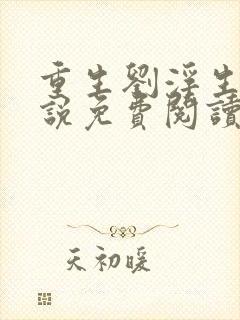 重生劉淫生
說免費閱讀
天初暖